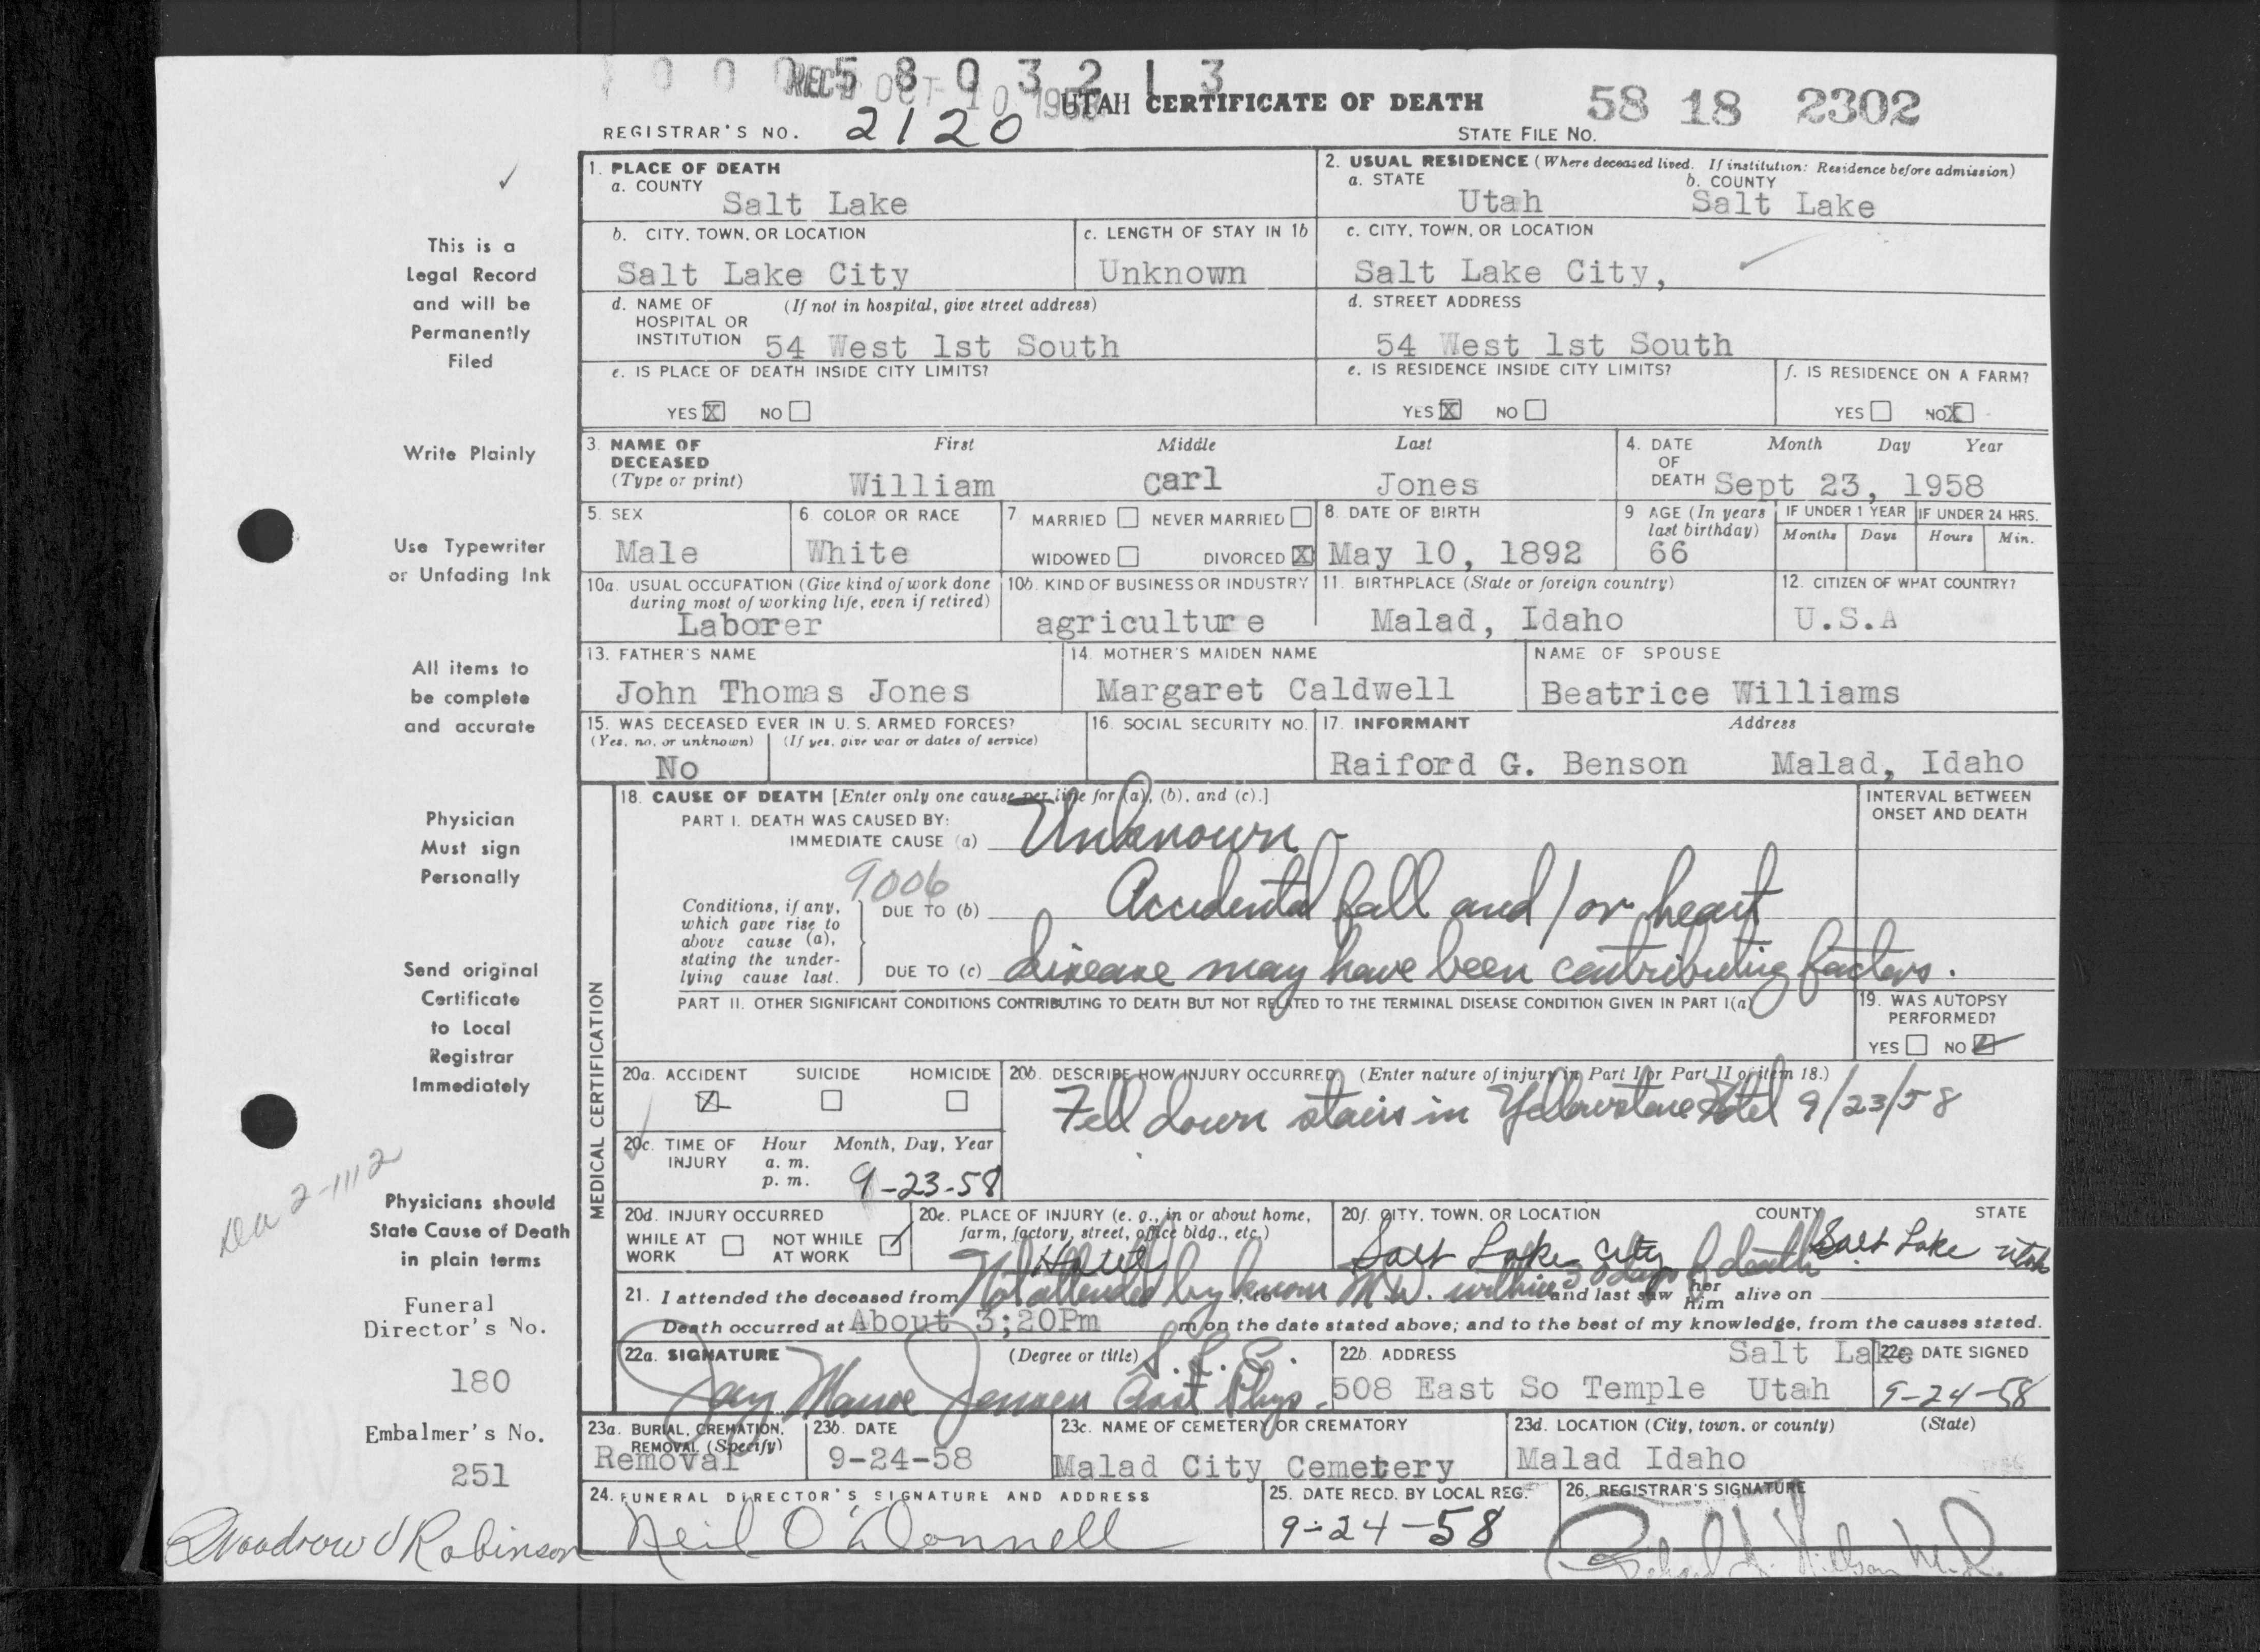 00058032 1 3
REC'D OCT 10 1958
UTAH CERTIFICATE OF DEATH
58 18 2302
REGISTRAR'S NO. 2120
STATE FILE NO.
1. PLACE OF DEATH
a. COUNTY
Salt Lake
2. USUAL RESIDENCE (Where deceased lived. If institution: Residence before admission)
a. STATE b. COUNTY
Utah Salt Lake
b. CITY, TOWN, OR LOCATION
Salt Lake City
c. LENGTH OF STAY IN 1b
Unknown
c. CITY, TOWN, OR LOCATION
Salt Lake City,
d. NAME OF (If not in hospital, give street address)
HOSPITAL OR
INSTITUTION 54 West 1st South
d. STREET ADDRESS
54 West 1st South
e. IS PLACE OF DEATH INSIDE CITY LIMITS?
YES X NO
e. IS RESIDENCE INSIDE CITY LIMITS?
YES X NO
f. IS RESIDENCE ON A FARM?
YES NO X
3. NAME OF First Middle Last
DECEASED
(Type or print) William Carl Jones
4. DATE Month Day Year
OF
DEATH Sept 23, 1958
5. SEX
Male
6. COLOR OR RACE
White
7. MARRIED NEVER MARRIED
WIDOWED DIVORCED X
8. DATE OF BIRTH
May 10, 1892
9 AGE (In years
last birthday)
66
IF UNDER 1 YEAR IF UNDER 24 HRS.
Months Days Hours Min.
10a. USUAL OCCUPATION (Give kind of work done
during most of working life, even if retired)
Laborer
10b. KIND OF BUSINESS OR INDUSTRY
agriculture
11. BIRTHPLACE (State or foreign country)
Malad, Idaho
12. CITIZEN OF WHAT COUNTRY?
U.S.A
13. FATHER'S NAME
John Thomas Jones
14. MOTHER'S MAIDEN NAME
Margaret Caldwell
NAME OF SPOUSE
Beatrice Williams
15. WAS DECEASED EVER IN U. S. ARMED FORCES?
(Yes, no, or unknown) (If yes, give war or dates of service)
No
16. SOCIAL SECURITY NO.
17. INFORMANT Address
Raiford G. Benson Malad, Idaho
MEDICAL CERTIFICATION
18. CAUSE OF DEATH [Enter only one cause per line for (a), (b), and (c).]
PART I. DEATH WAS CAUSED BY:
IMMEDIATE CAUSE (a) Unknown -
INTERVAL BETWEEN
ONSET AND DEATH
9006
Conditions, if any,
which gave rise to
above cause (a),
stating the under-
lying cause last.
DUE TO (b) Accidental fall and/or heart
DUE TO (c) disease may have been contributing factors.
PART II. OTHER SIGNIFICANT CONDITIONS CONTRIBUTING TO DEATH BUT NOT RELATED TO THE TERMINAL DISEASE CONDITION GIVEN IN PART I(a)
19. WAS AUTOPSY
PERFORMED?
YES NO
20a. ACCIDENT SUICIDE HOMICIDE
20b. DESCRIBE HOW INJURY OCCURRED. (Enter nature of injury in Part I or Part II of item 18.)
Fell down stairs in Yellowstone Hotel 9/23/58
20c. TIME OF Hour Month, Day, Year
INJURY a. m.
p. m. 9-23-58
20d. INJURY OCCURRED
WHILE AT NOT WHILE
WORK AT WORK
20e. PLACE OF INJURY (e. g., in or about home,
farm, factory, street, office bldg., etc.)
Hotel
20f. CITY, TOWN, OR LOCATION COUNTY STATE
Salt Lake City Salt Lake Utah
21. I attended the deceased from Not attended by known M.D. within 30 days of death, to and last saw her him alive on
Death occurred at About 3;20Pm m on the date stated above; and to the best of my knowledge, from the causes stated.
22a. SIGNATURE (Degree or title)
Jay Manoe Jensen S.L.C. Asst Phys.
22b. ADDRESS Salt Lake
508 East So Temple Utah
22c. DATE SIGNED
9-24-58
23a. BURIAL, CREMATION,
REMOVAL (Specify)
Removal
23b. DATE
9-24-58
23c. NAME OF CEMETERY OR CREMATORY
Malad City Cemetery
23d. LOCATION (City, town, or county) (State)
Malad Idaho
24. FUNERAL DIRECTOR'S SIGNATURE AND ADDRESS
Neil O'Donnell
25. DATE RECD. BY LOCAL REG.
9-24-58
26. REGISTRAR'S SIGNATURE
This is a
Legal Record
and will be
Permanently
Filed
Write Plainly
Use Typewriter
or Unfading Ink
All items to
be complete
and accurate
Physician
Must sign
Personally
Send original
Certificate
to Local
Registrar
Immediately
2-1112
Physicians should
State Cause of Death
in plain terms
Funeral
Director's No.
180
Embalmer's No.
251
Woodrow J Robinson